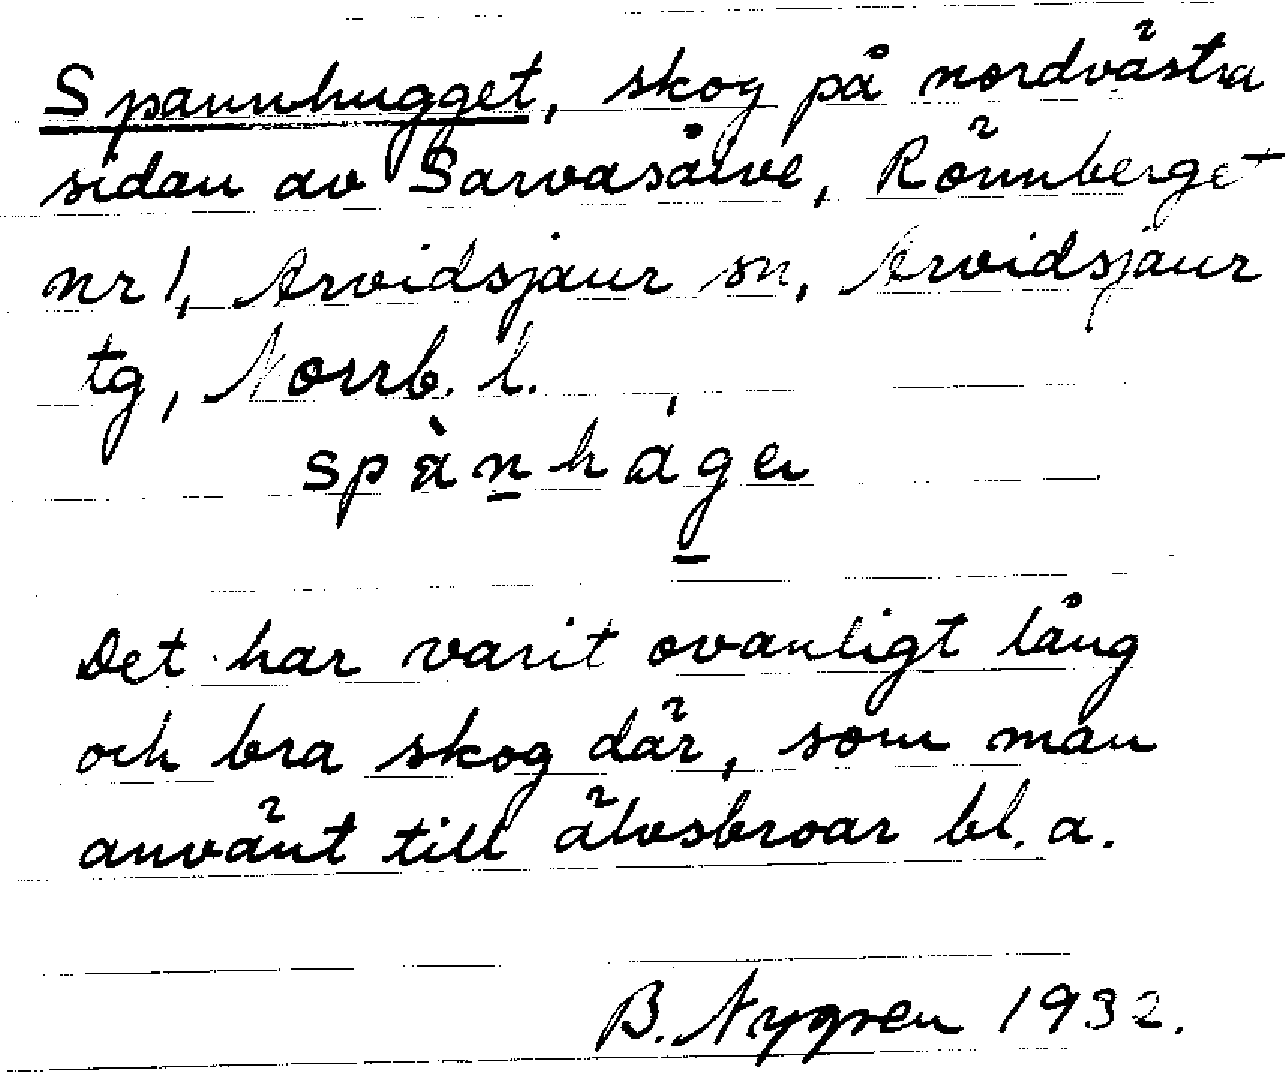 Spannhugget, skog på nordvästra
sidan av Sarvasåive, Rönnberget
nr 1, Arvidsjaur sn, Arvidsjaur
tg, Norrb. l.
spànháger
Det har varit ovanligt lång
och bra skog där, som man
använt till älvsbroar bl. a.
B. Nygren 1932.